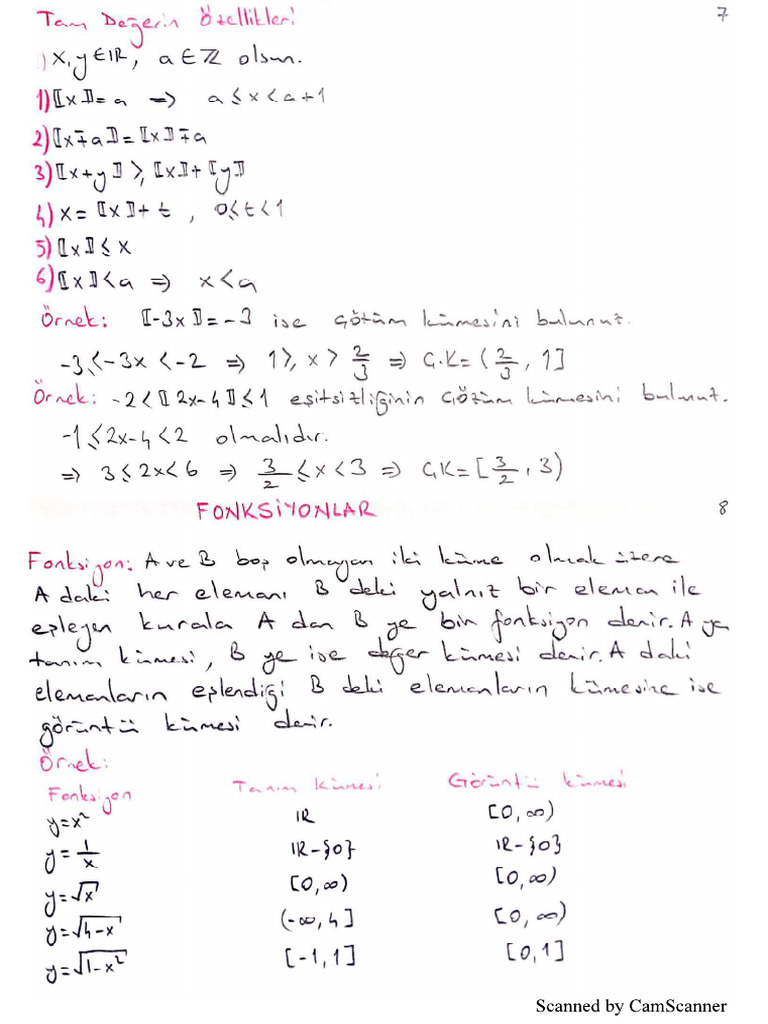 Tam Değerin Özellikleri 7
) x,y∈ℝ, a∈ℤ olsun.
1) ⟦x⟧=a ⇒ a≤x<a+1
2) ⟦x∓a⟧=⟦x⟧∓a
3) ⟦x+y⟧≥⟦x⟧+⟦y⟧
4) x=⟦x⟧+t , 0≤t<1
5) ⟦x⟧≤x
6) ⟦x⟧<a ⇒ x<a
Örnek: ⟦-3x⟧=-3 ise çözüm kümesini bulunuz.
-3≤-3x<-2 ⇒ 1≥x>2/3 ⇒ Ç.K=(2/3, 1]
Örnek: -2<⟦2x-4⟧≤1 eşitsizliğinin çözüm kümesini bulunuz.
-1≤2x-4<2 olmalıdır.
⇒ 3≤2x<6 ⇒ 3/2≤x<3 ⇒ ÇK=[3/2, 3)
FONKSİYONLAR 8
Fonksiyon: A ve B boş olmayan iki küme olmak üzere
A daki her elemanı B deki yalnız bir eleman ile
eşleyen kurala A dan B ye bir fonksiyon denir. A ya
tanım kümesi, B ye ise değer kümesi denir. A daki
elemanların eşlendiği B deki elemanların kümesine ise
görüntü kümesi denir.
Örnek:
Fonksiyon Tanım Kümesi Görüntü kümesi
y=x² ℝ [0,∞)
y=1/x ℝ-{0} ℝ-{0}
y=√x [0,∞) [0,∞)
y=√(4-x) (-∞,4] [0,∞)
y=√(1-x²) [-1,1] [0,1]
Scanned by CamScanner